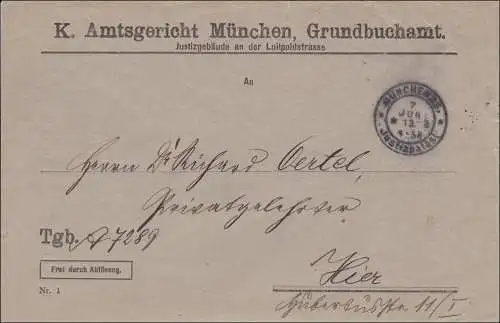 K. Amtsgericht München, Grundbuchamt.
Justizgebäude an der Luitpoldstrasse
An
MÜNCHEN
7
JUN
13
4-5N
Justizpalast
Herrn Dr Richard Oertel,
Privatgelehrter
Tgb. A 7289
Frei durch Ablösung.
Hier
Nr. 1
Hubertusstr. 11/I